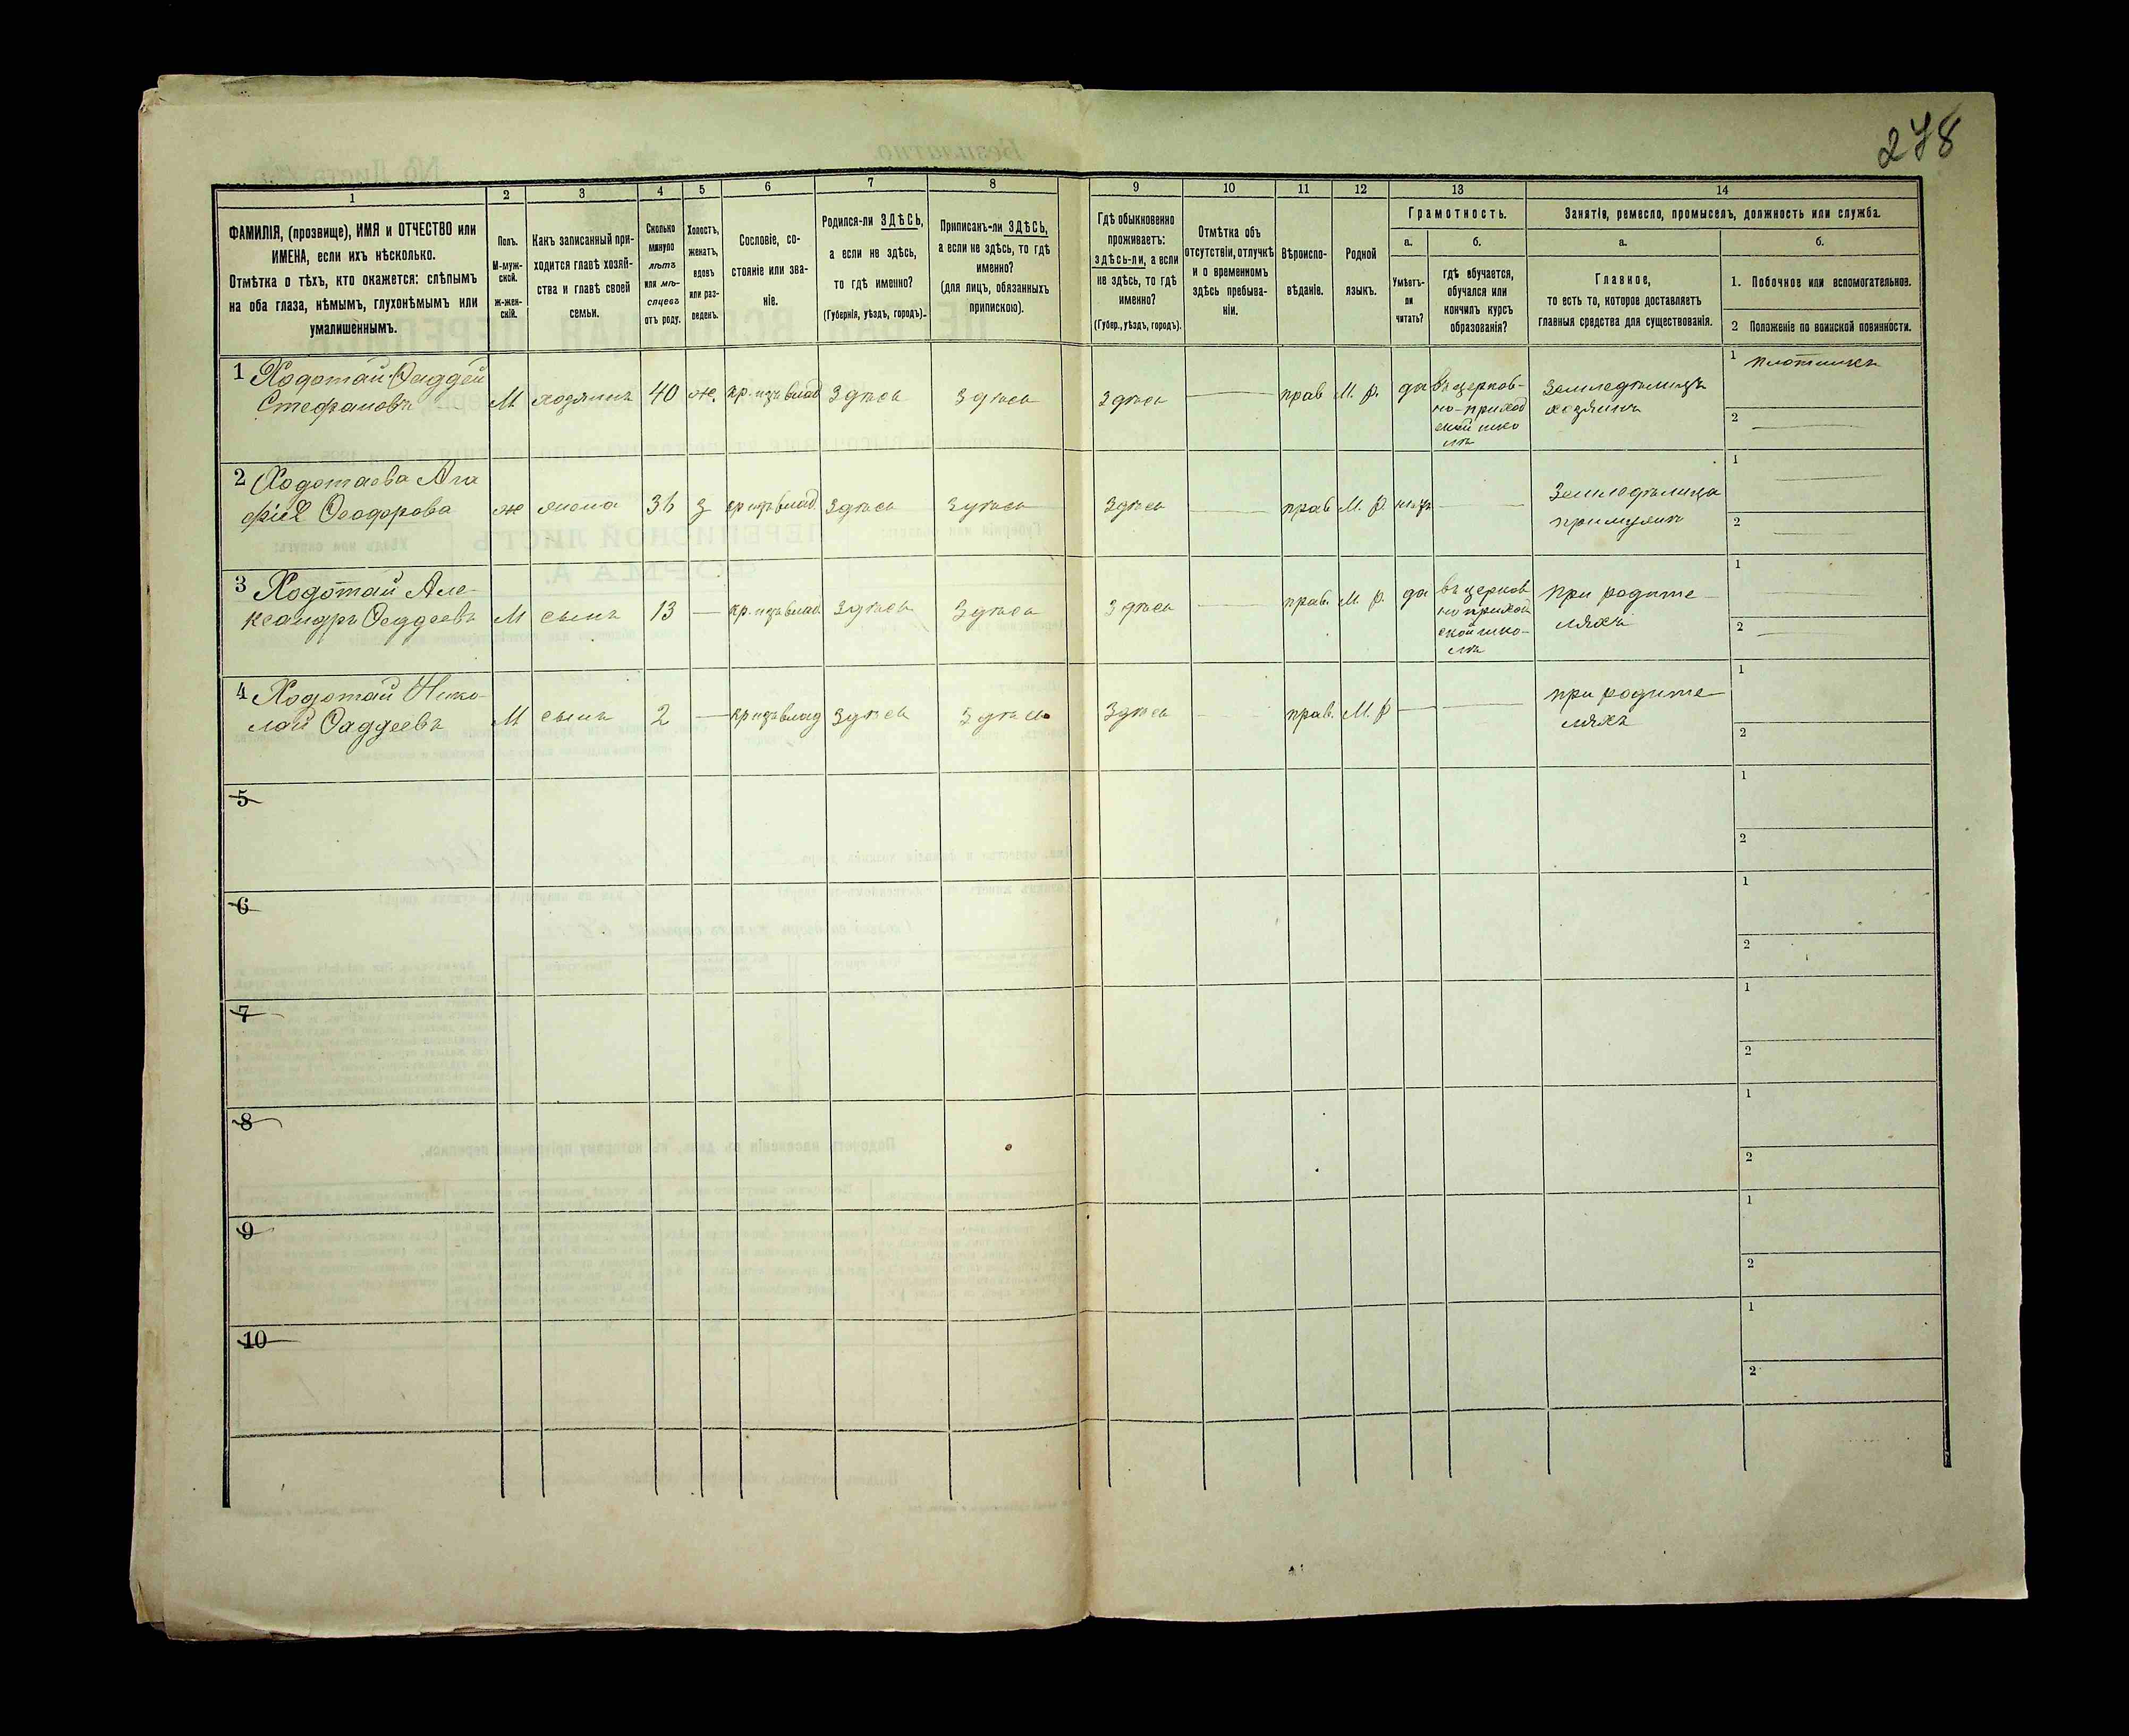 278
1 2 3 4 5 6 7 8 9 10 11 12 13 14
ФАМИЛІЯ, (прозвище), ИМЯ и ОТЧЕСТВО или
ИМЕНА, если ихъ нѣсколько.
Отмѣтка о тѣхъ, кто окажется: слѣпымъ
на оба глаза, нѣмымъ, глухонѣмымъ или
умалишеннымъ.
Полъ.
М-муж-
ской.
ж-жен-
скій.
Какъ записанный при-
ходится главѣ хозяй-
ства и главѣ своей
семьи.
Сколько
минуло
лѣтъ
или мѣ-
сяцевъ
отъ роду.
Холостъ,
женатъ,
вдовъ
или раз-
веденъ.
Сословіе, со-
стояніе или зва-
ніе.
Родился-ли ЗДѢСЬ,
а если не здѣсь,
то гдѣ именно?
(Губернія, уѣздъ, городъ).
Приписанъ-ли ЗДѢСЬ,
а если не здѣсь, то гдѣ
именно?
(для лицъ, обязанныхъ
припискою).
Гдѣ обыкновенно
проживаетъ:
здѣсь-ли, а если
не здѣсь, то гдѣ
именно?
(Губер., уѣздъ, городъ).
Отмѣтка объ
отсутствіи, отлучкѣ
и о временномъ
здѣсь пребыва-
ніи.
Вѣроиспо-
вѣданіе.
Родной
языкъ.
Грамотность.
а.
Умѣетъ-
ли
читать?
б.
гдѣ обучается,
обучался или
кончилъ курсъ
образованія?
Занятія, ремесло, промыселъ, должность или служба.
а.
Главное,
то есть то, которое доставляетъ
главныя средства для существованія.
б.
1. Побочное или вспомогательное.
2 Положеніе по воинской повинности.
1 Ходотай Фаддей
Стефановъ
М хозяинъ 40 ж. кр. изъ влад здѣсь здѣсь здѣсь прав М. р. да
въ церков-
но-приход
ской шко
лѣ
Земледѣлецъ
хозяинъ
1 плотникъ
2
2 Ходотаева Ага
фія Феодорова
ж жена 36 з кр изъ влад. здѣсь здѣсь здѣсь прав М. р. нѣтъ
Земледѣлица
при мужѣ
1
2
3 Ходотай Але-
ксандръ Фаддеевъ
М сынъ 13 кр. изъ влад здѣсь здѣсь здѣсь прав. М. р. да
въ церков
но приход
ской шко-
лѣ
при родите-
ляхъ
1
2
4 Ходотай Нико-
лай Фаддеевъ
М сынъ 2 кр изъ влад здѣсь здѣсь здѣсь прав. М. р
при родите-
ляхъ
1
2
5
1
2
6
1
2
7
1
2
8
1
2
9
1
2
10
1
2